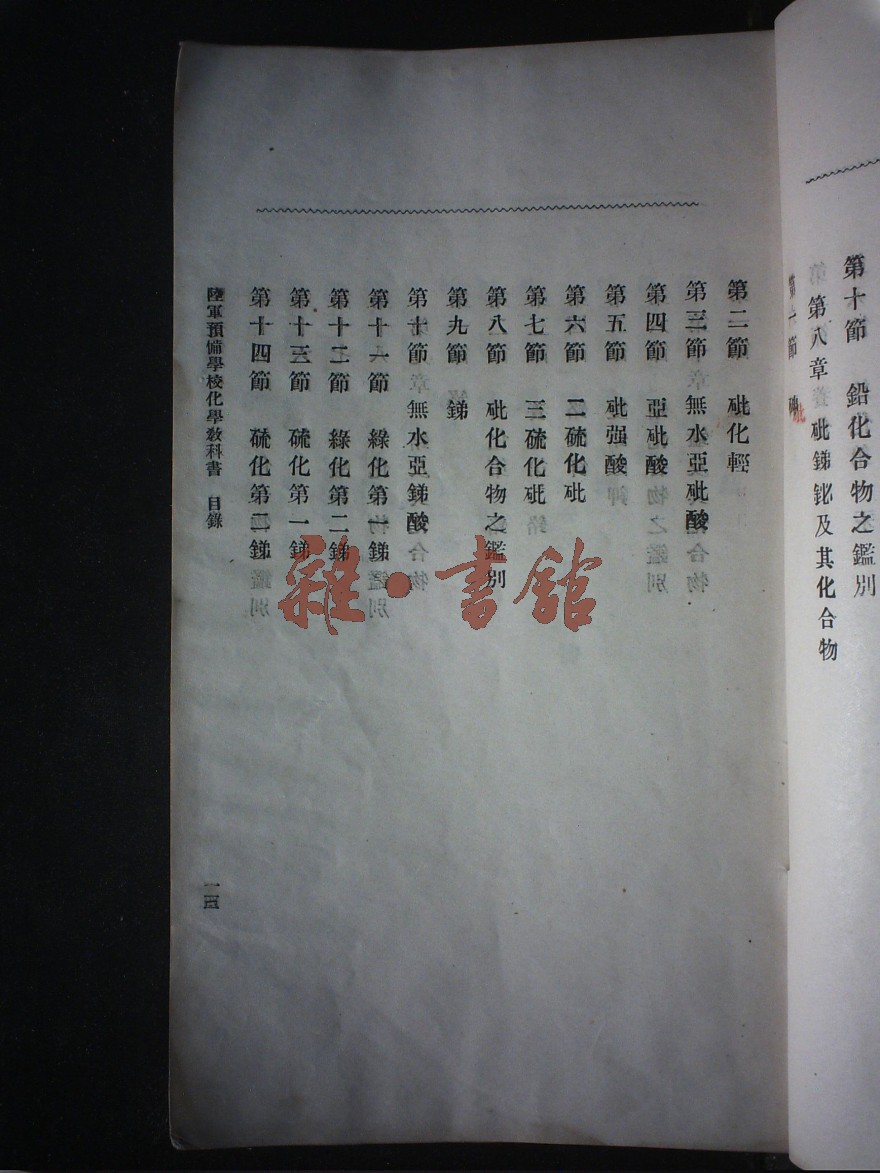 第十節　鉛化合物之鑑別
第八章　砒銻鉍及其化合物
第一節　砒
第二節　砒化輕
第三節　無水亞砒酸
第四節　亞砒酸
第五節　砒强酸
第六節　二硫化砒
第七節　三硫化砒
第八節　砒化合物之鑑別
第九節　銻
第十節　無水亞銻酸
第十一節　綠化第一銻
第十二節　綠化第二銻
第十三節　硫化第一銻
第十四節　硫化第二銻
陸軍預備學校化學敎科書　目錄
一四
雜·書館